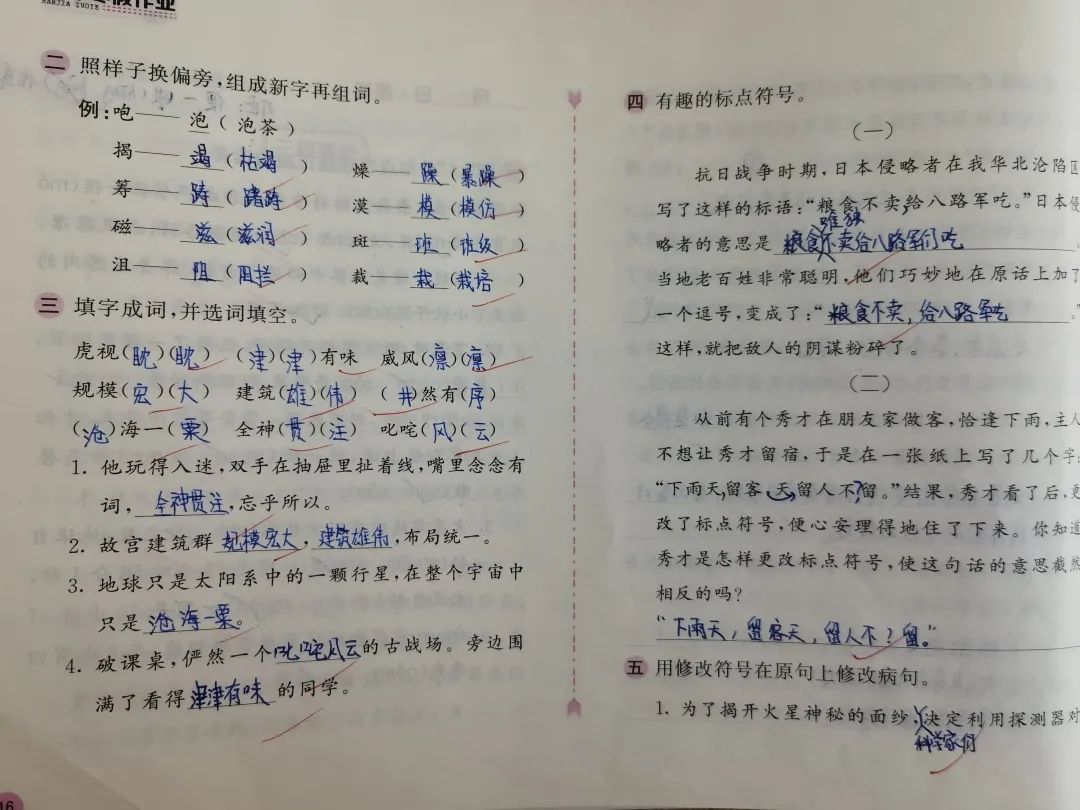 假作业
HANJIA ZUOYE
二 照样子换偏旁,组成新字再组词。
例:咆—— 泡(泡茶)
揭—— 竭(枯竭) 燥—— 躁(暴躁)
筹—— 踌(踌躇) 漠—— 模(模仿)
磁—— 滋(滋润) 斑—— 班(班级)
沮—— 阻(阻拦) 裁—— 栽(栽培)
三 填字成词,并选词填空。
虎视(眈)(眈) (津)(津)有味 威风(凛)(凛)
规模(宏)(大) 建筑(雄)(伟) (井)然有(序)
(沧)海一(粟) 全神(贯)(注) 叱咤(风)(云)
1. 他玩得入迷,双手在抽屉里扯着线,嘴里念念有
词,全神贯注,忘乎所以。
2. 故宫建筑群规模宏大,建筑雄伟,布局统一。
3. 地球只是太阳系中的一颗行星,在整个宇宙中
只是沧海一粟。
4. 破课桌,俨然一个叱咤风云的古战场。旁边围
满了看得津津有味的同学。
16
四 有趣的标点符号。
(一)
抗日战争时期,日本侵略者在我华北沦陷区
写了这样的标语:“粮食不卖给八路军吃。”日本侵
唯独
略者的意思是 粮食不卖给八路军们吃
当地老百姓非常聪明,他们巧妙地在原话上加了
一个逗号,变成了:“粮食不卖,给八路军吃”
这样,就把敌人的阴谋粉碎了。
(二)
从前有个秀才在朋友家做客,恰逢下雨,主人
不想让秀才留宿,于是在一张纸上写了几个字:
“下雨天,留客天,留人不?留。”结果,秀才看了后,更
改了标点符号,便心安理得地住了下来。你知道
秀才是怎样更改标点符号,使这句话的意思截然
相反的吗?
“下雨天,留客天,留人不?留。”
五 用修改符号在原句上修改病句。
1. 为了揭开火星神秘的面纱,决定利用探测器对
科学家们